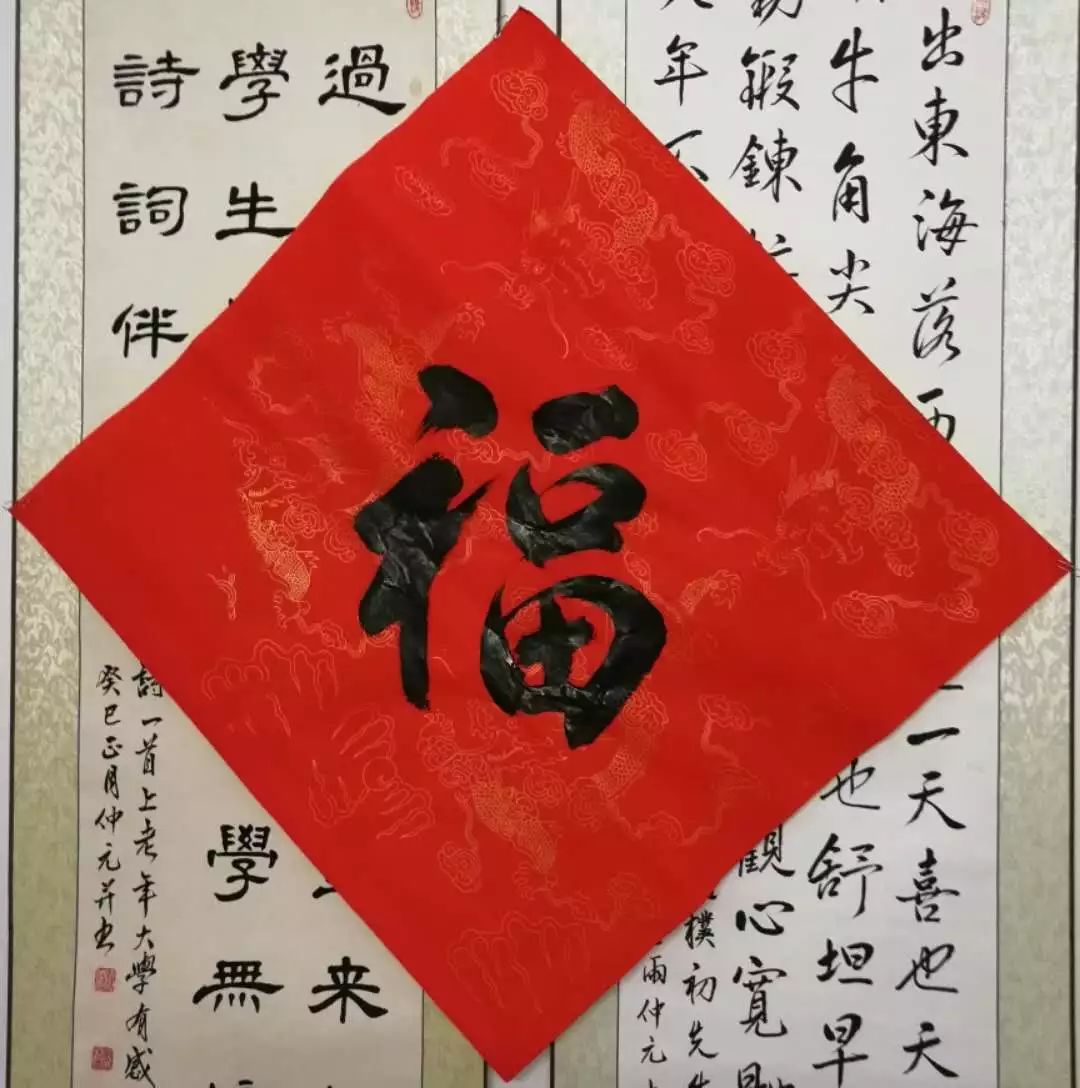 福
出東海落西
一天喜也天
牛角尖
也舒坦早
鍛鍊
觀心寬
年不
樸初先
雨仲元
過
来
學生
學無
詩詞伴
詩一首上老年大學有感
癸巳正月仲元并书